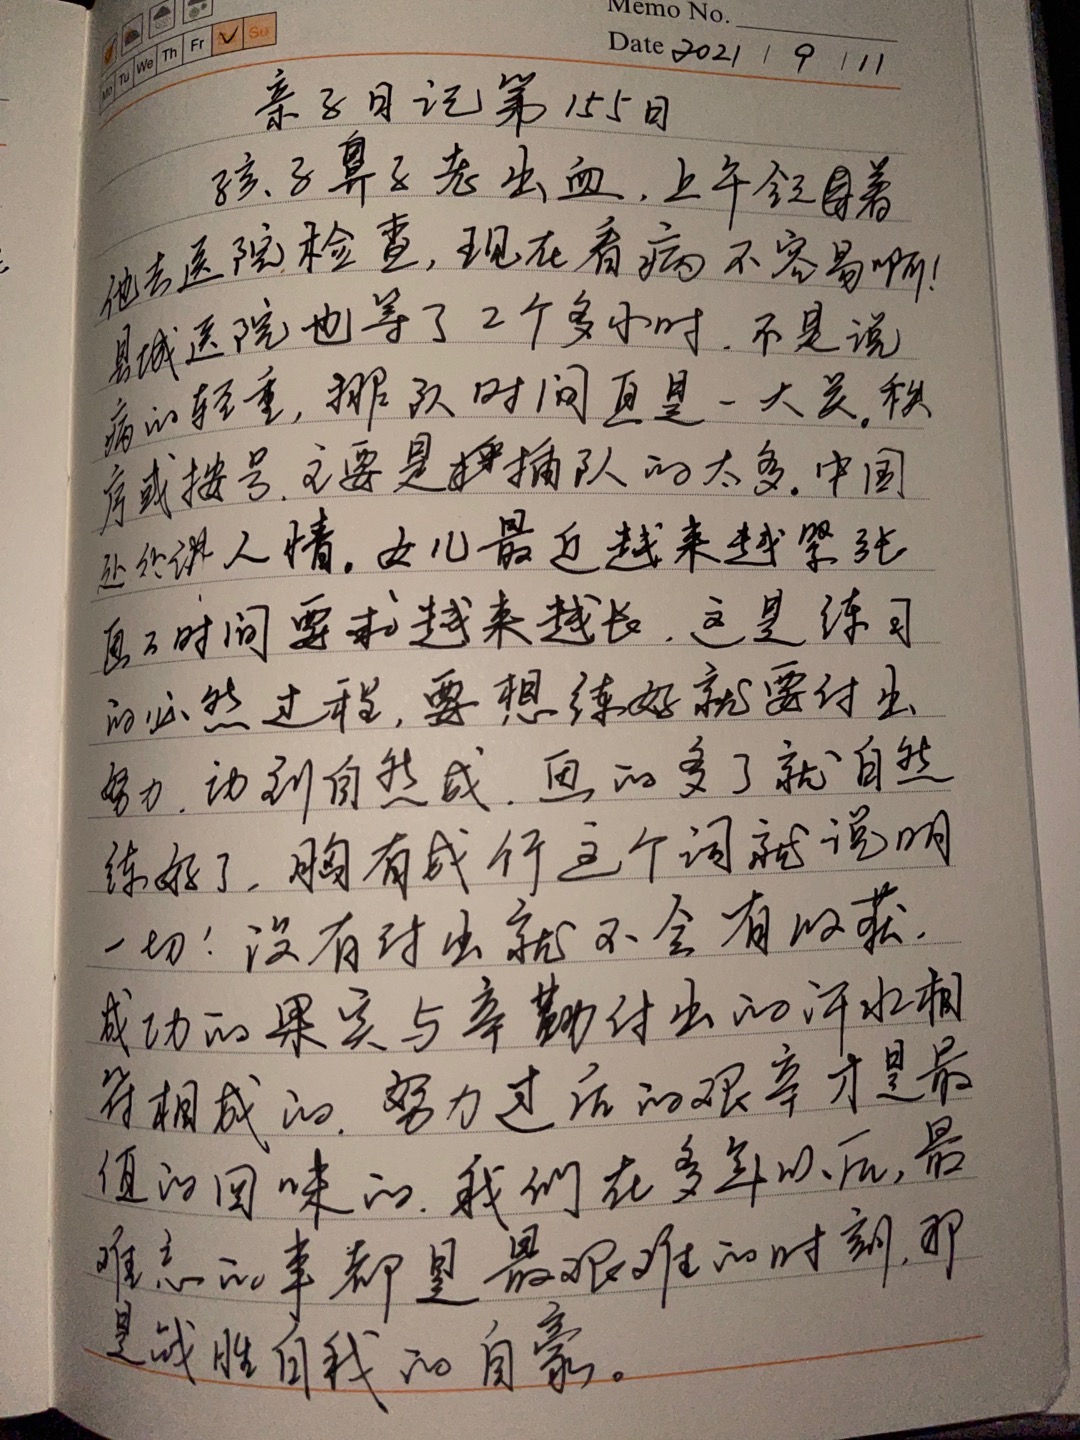 Memo No.
Mo Tu We Th Fr Su
Date 2021 / 9 / 11
亲子日记第155日
孩子鼻子老出血,上午领着
他去医院检查,现在看病不容易啊!
县城医院也等了2个多小时.不是说
病的轻重,排队时间直是一大关。秩
序或按号.主要是插队的太多。中国
处处讲人情。女儿最近越来越紧张
画了时间要求越来越长.这是练习
的必然过程,要想练好就要付出
努力.功到自然成.画的多了就自然
练好了.胸有成竹这个词就说明
一切!没有付出就不会有收获.
成功的果实与辛勤付出的汗水相
符相成的.努力过后的艰辛才是最
值的回味的.我们在多年以后,最
难忘的事都是最艰难的时刻.那
是战胜自我的自豪。